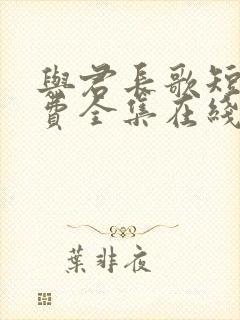 與君長歌短
費全集在綫
葉非夜